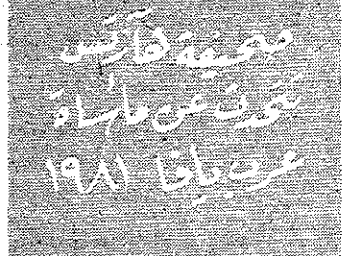 صحيفة هآرتس
تتحدث عن مأساة
عرب يافا ١٩٨١